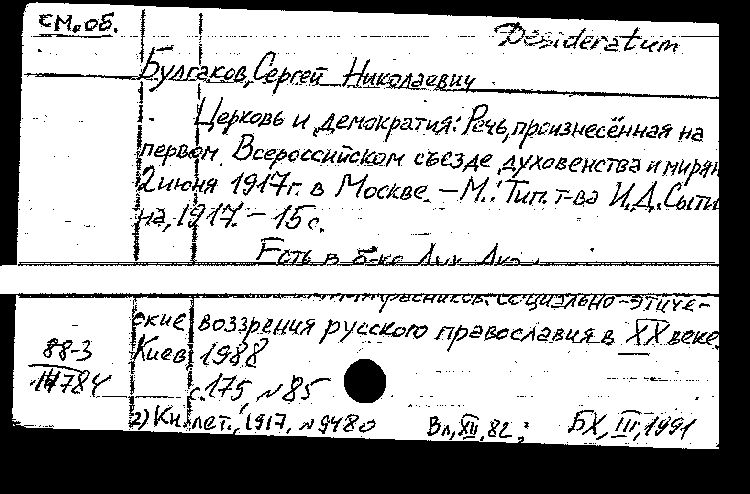 см. об.
Desideratum
Булгаков, Сергей Николаевич
Церковь и демократия: Речь, произнесённая на
первом Всероссийском съезде духовенства и мирян
2 июня 1917 г. в Москве. – М.: Тип. т-ва И.Д. Сыти-
на, 1917. – 15 с.
Есть в б-ке Дух. Ака
социально-этиче-
ские воззрения русского православия в XX веке.
Киев, 1988
88-3
14784
с. 175, №85
2) Кн. лет., 1917, №9480 Вл, XII, 82; БХ, III, 1991